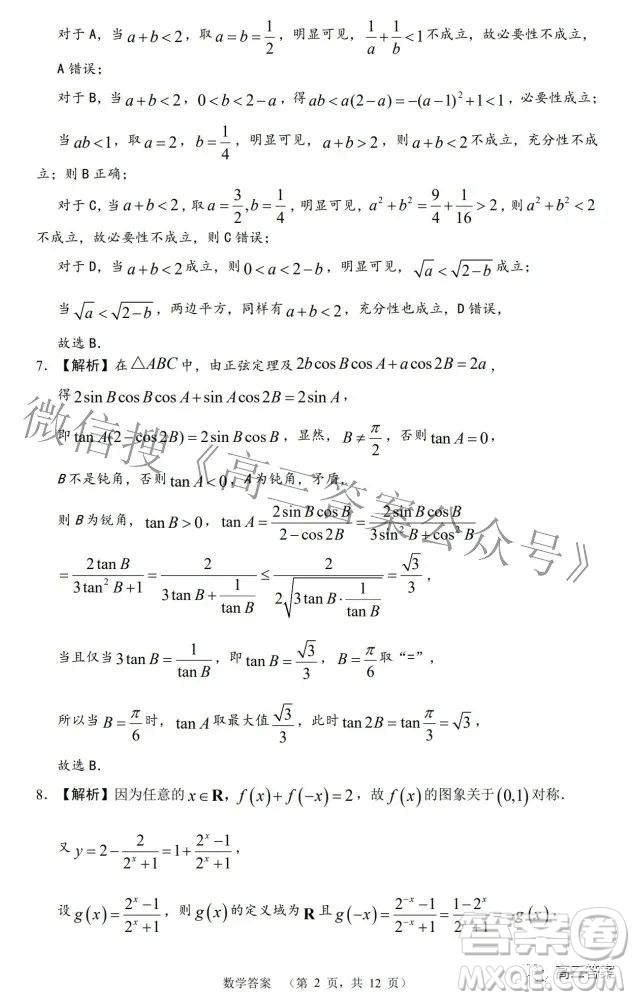 对于 A，当 a+b<2，取 a=b=1/2，明显可见，1/a+1/b<1 不成立，故必要性不成立，
A 错误；
对于 B，当 a+b<2，0<b<2-a，得 ab<a(2-a)=-(a-1)²+1<1，必要性成立；
当 ab<1，取 a=2，b=1/4，明显可见，a+b>2，则 a+b<2 不成立，充分性不成
立；则 B 正确；
对于 C，当 a+b<2，取 a=3/2,b=1/4，明显可见，a²+b²=9/4+1/16>2，则 a²+b²<2
不成立，故必要性不成立，则 C 错误；
对于 D，当 a+b<2 成立，则 0<a<2-b，明显可见，√a<√(2-b) 成立；
当 √a<√(2-b)，两边平方，同样有 a+b<2，充分性也成立，D 错误，
故选 B．
7．【解析】在 △ABC 中，由正弦定理及 2b cos B cos A+a cos 2B=2a，
得 2sin B cos B cos A+sin A cos 2B=2sin A，
即 tan A(2-cos 2B)=2sin B cos B，显然，B≠π/2，否则 tan A=0，
B 不是钝角，否则 tan A<0，A 为钝角，矛盾．
则 B 为锐角，tan B>0，tan A=2sin B cos B/(2-cos 2B)=2sin B cos B/(3sin²B+cos²B)
=2tan B/(3tan²B+1)=2/(3tan B+1/tan B)≤2/(2√(3tan B·1/tan B))=√3/3，
当且仅当 3tan B=1/tan B，即 tan B=√3/3，B=π/6 取“=”，
所以当 B=π/6 时，tan A 取最大值 √3/3，此时 tan 2B=tan π/3=√3，
故选 B．
8．【解析】因为任意的 x∈R，f(x)+f(-x)=2，故 f(x) 的图象关于 (0,1) 对称．
又 y=2-2/(2ˣ+1)=1+(2ˣ-1)/(2ˣ+1)，
设 g(x)=(2ˣ-1)/(2ˣ+1)，则 g(x) 的定义域为 R 且 g(-x)=(2⁻ˣ-1)/(2⁻ˣ+1)=(1-2ˣ)/(1+2ˣ) g(x)．
数学答案 （第 2 页，共 12 页）
微信搜《高三答案公众号》
高三答案
答案圈
MXQE.COM